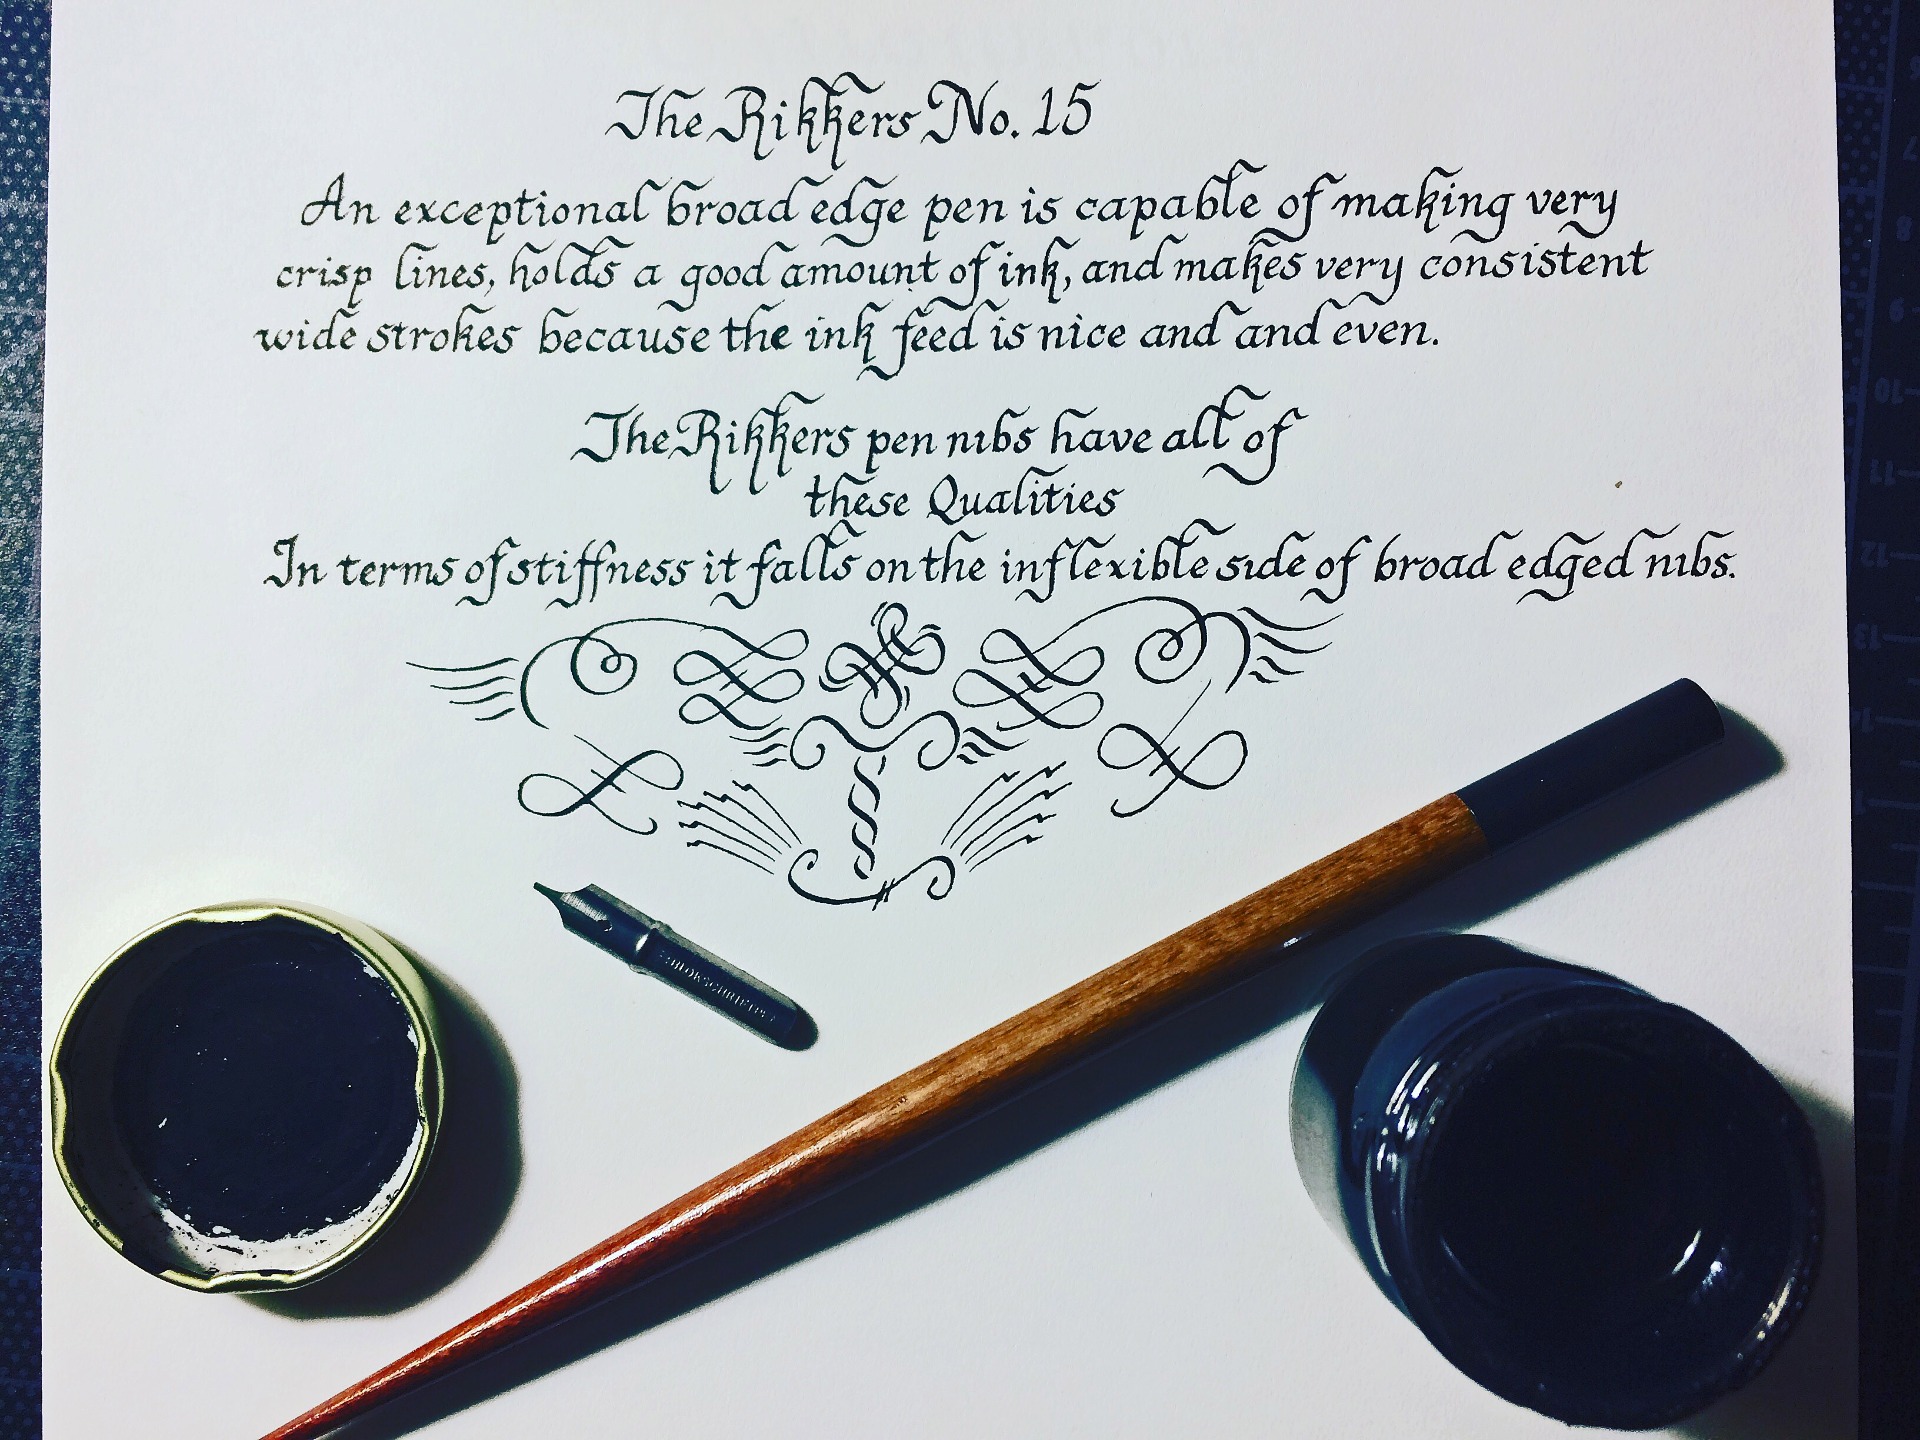 The Rikkers No. 15
An exceptional broad edge pen is capable of making very
crisp lines, holds a good amount of ink, and makes very consistent
wide strokes because the ink feed is nice and and even.
The Rikkers pen nibs have all of
these Qualities
In terms of stiffness it falls on the inflexible side of broad edged nibs.
7
8
9
10
11
12
13